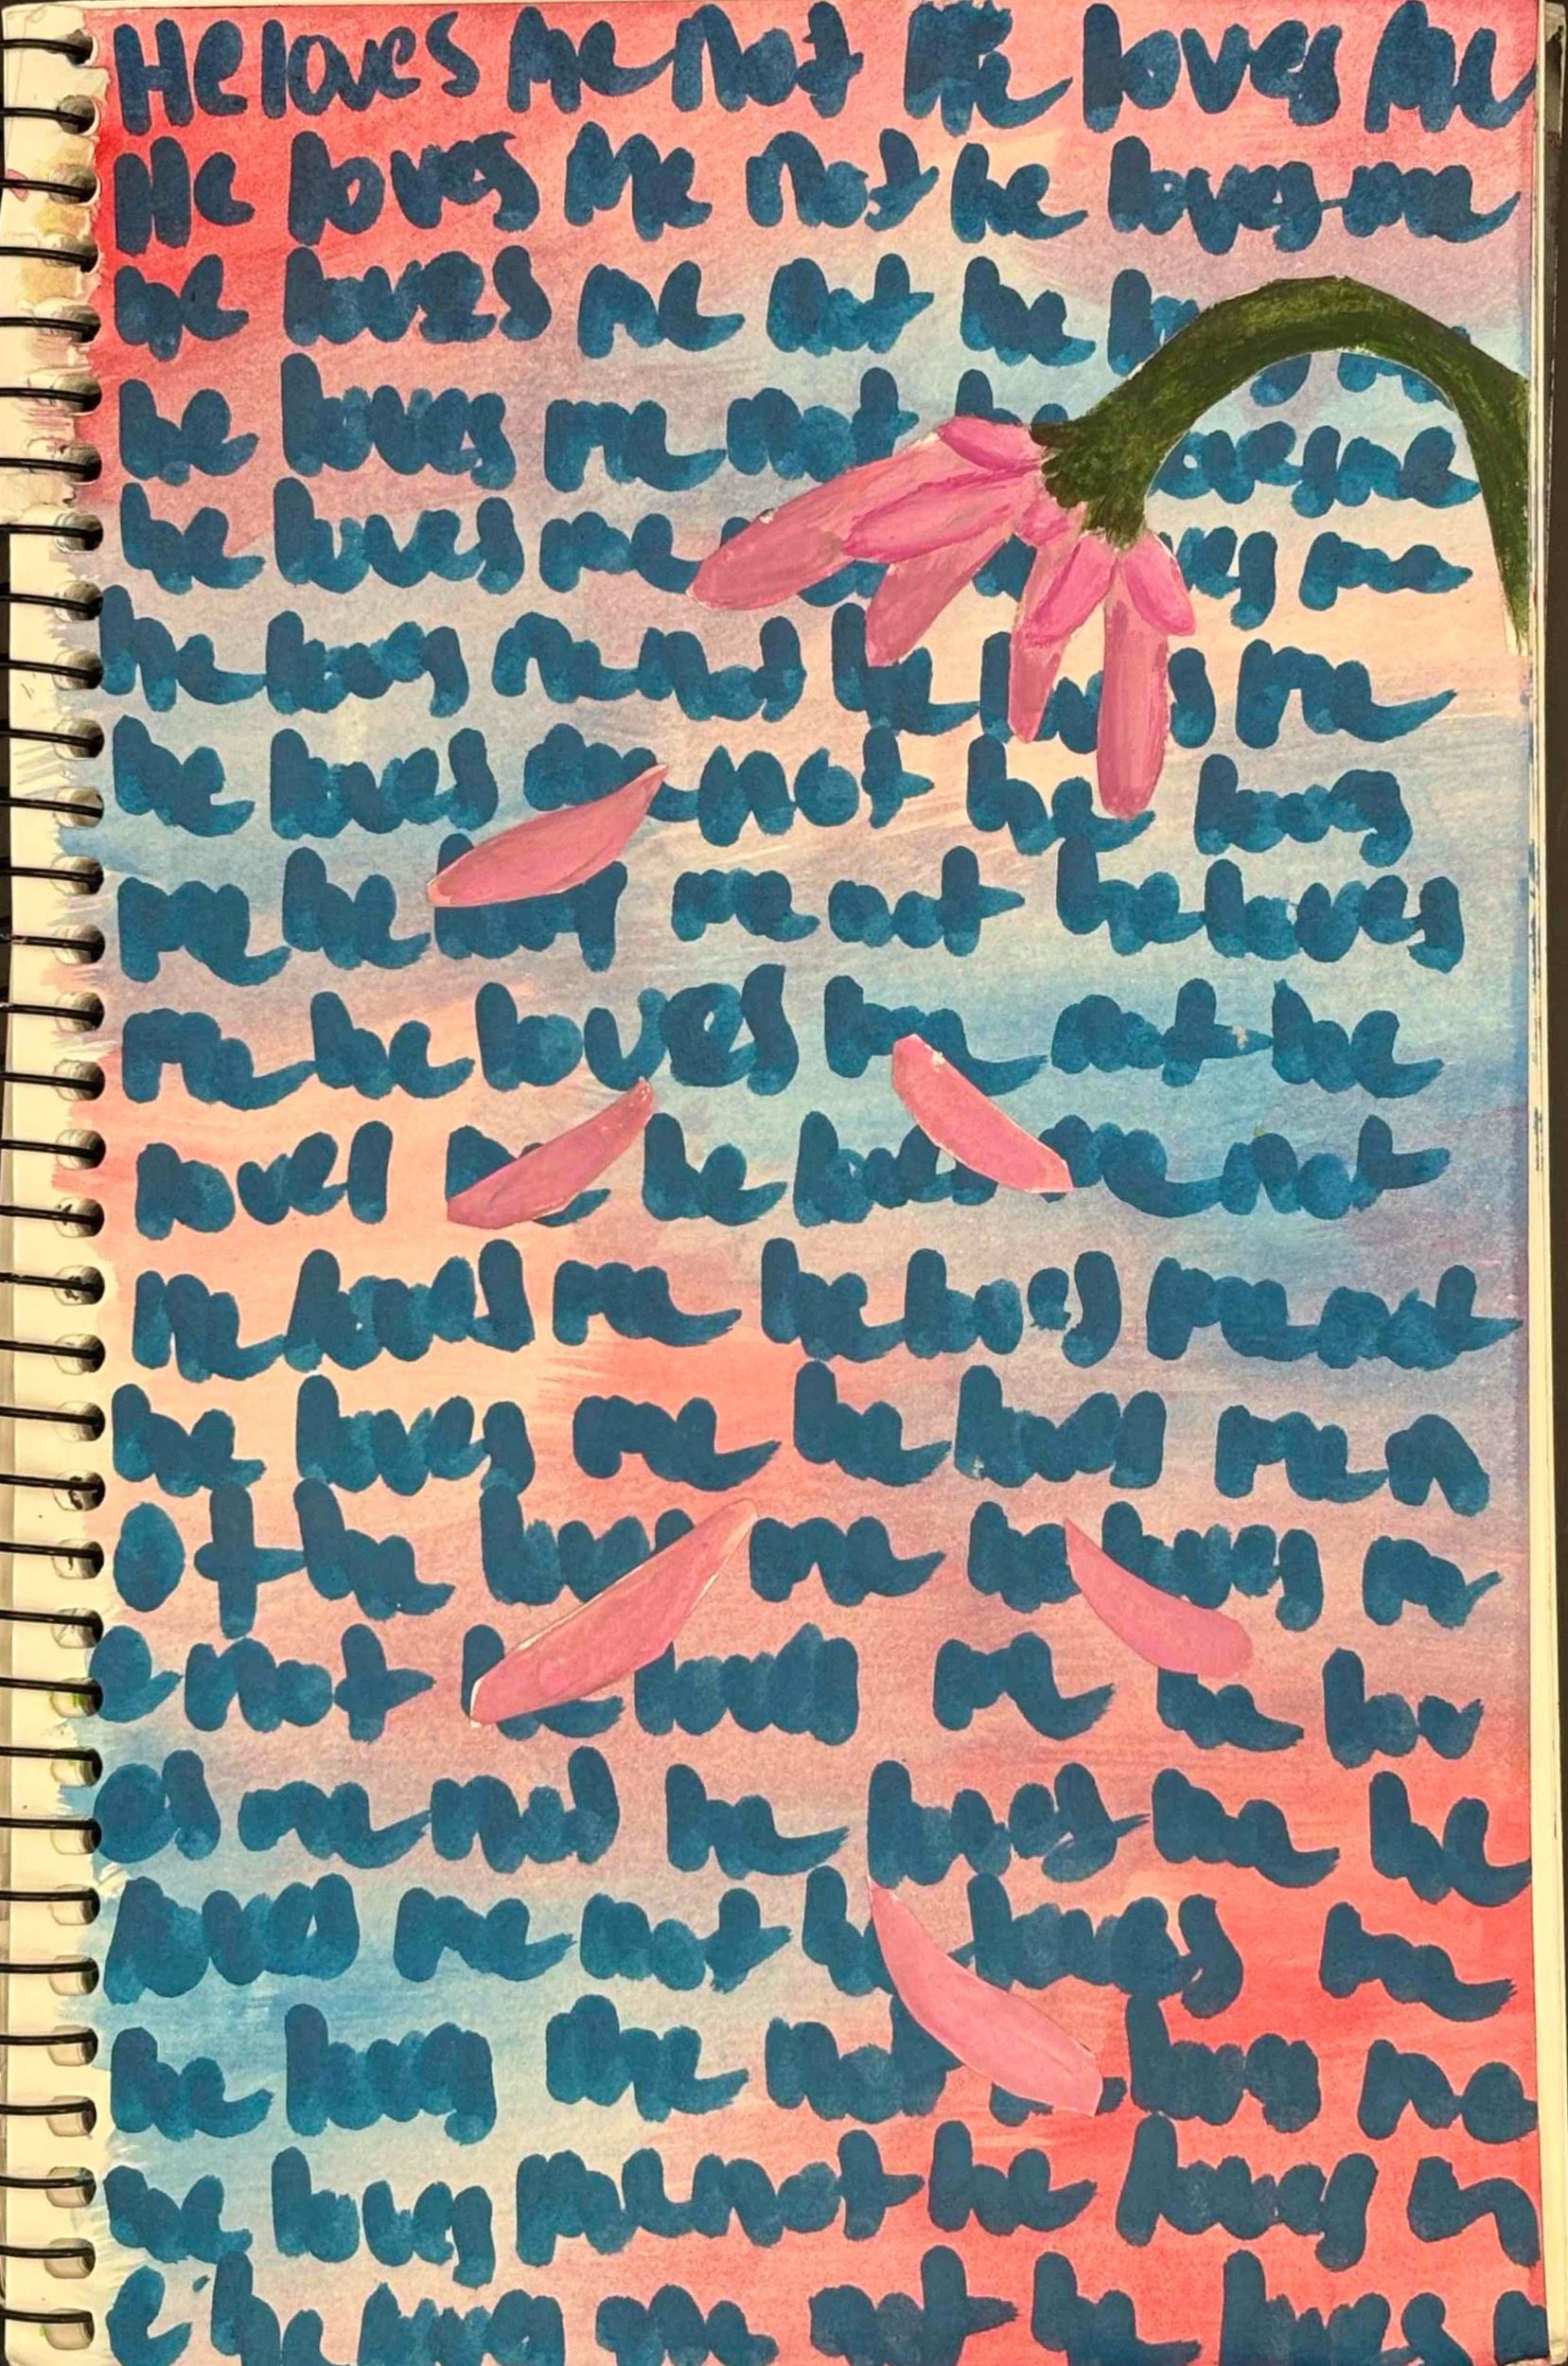 He loves me not He loves me
He loves me not he loves me
he loves me not he
he loves me not he loves me
he loves me me
he loves me not he loves me
he loves me not he loves
me he loves me not he loves
me he loves me not he
loves he loves me not
he loves me he loves me not
he loves me he loves me n
ot he loves me he loves m
e not he loves me he lov
es me not he loves me he
loves me not he loves me
he loves me not loves me
he loves me not he loves m
e he loves me not he loves m